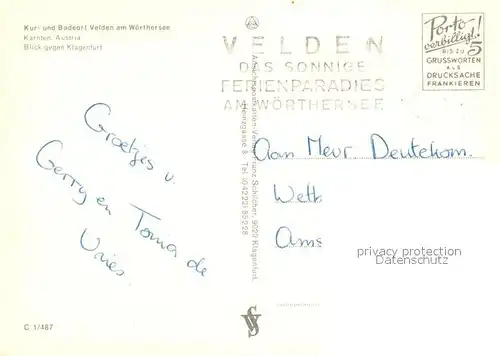 Kur- und Badeort Velden am Wörthersee
Kärnten, Austria
Blick gegen Klagenfurt
VELDEN
DAS SONNIGE
FERIENPARADIES
AM WÖRTHERSEE
Porto
verbilligt!
BIS ZU 5
GRUSSWORTEN
ALS
DRUCKSACHE
FRANKIEREN
Groetjes v.
Gerry en Tonia de
Vries
Franz Schilcher, 9020 Klagenfurt
8, Tel. (04222) 85228
Aan Mevr Deutekom.
Wett
Ams
privacy protection
Datenschutz
C 1/487